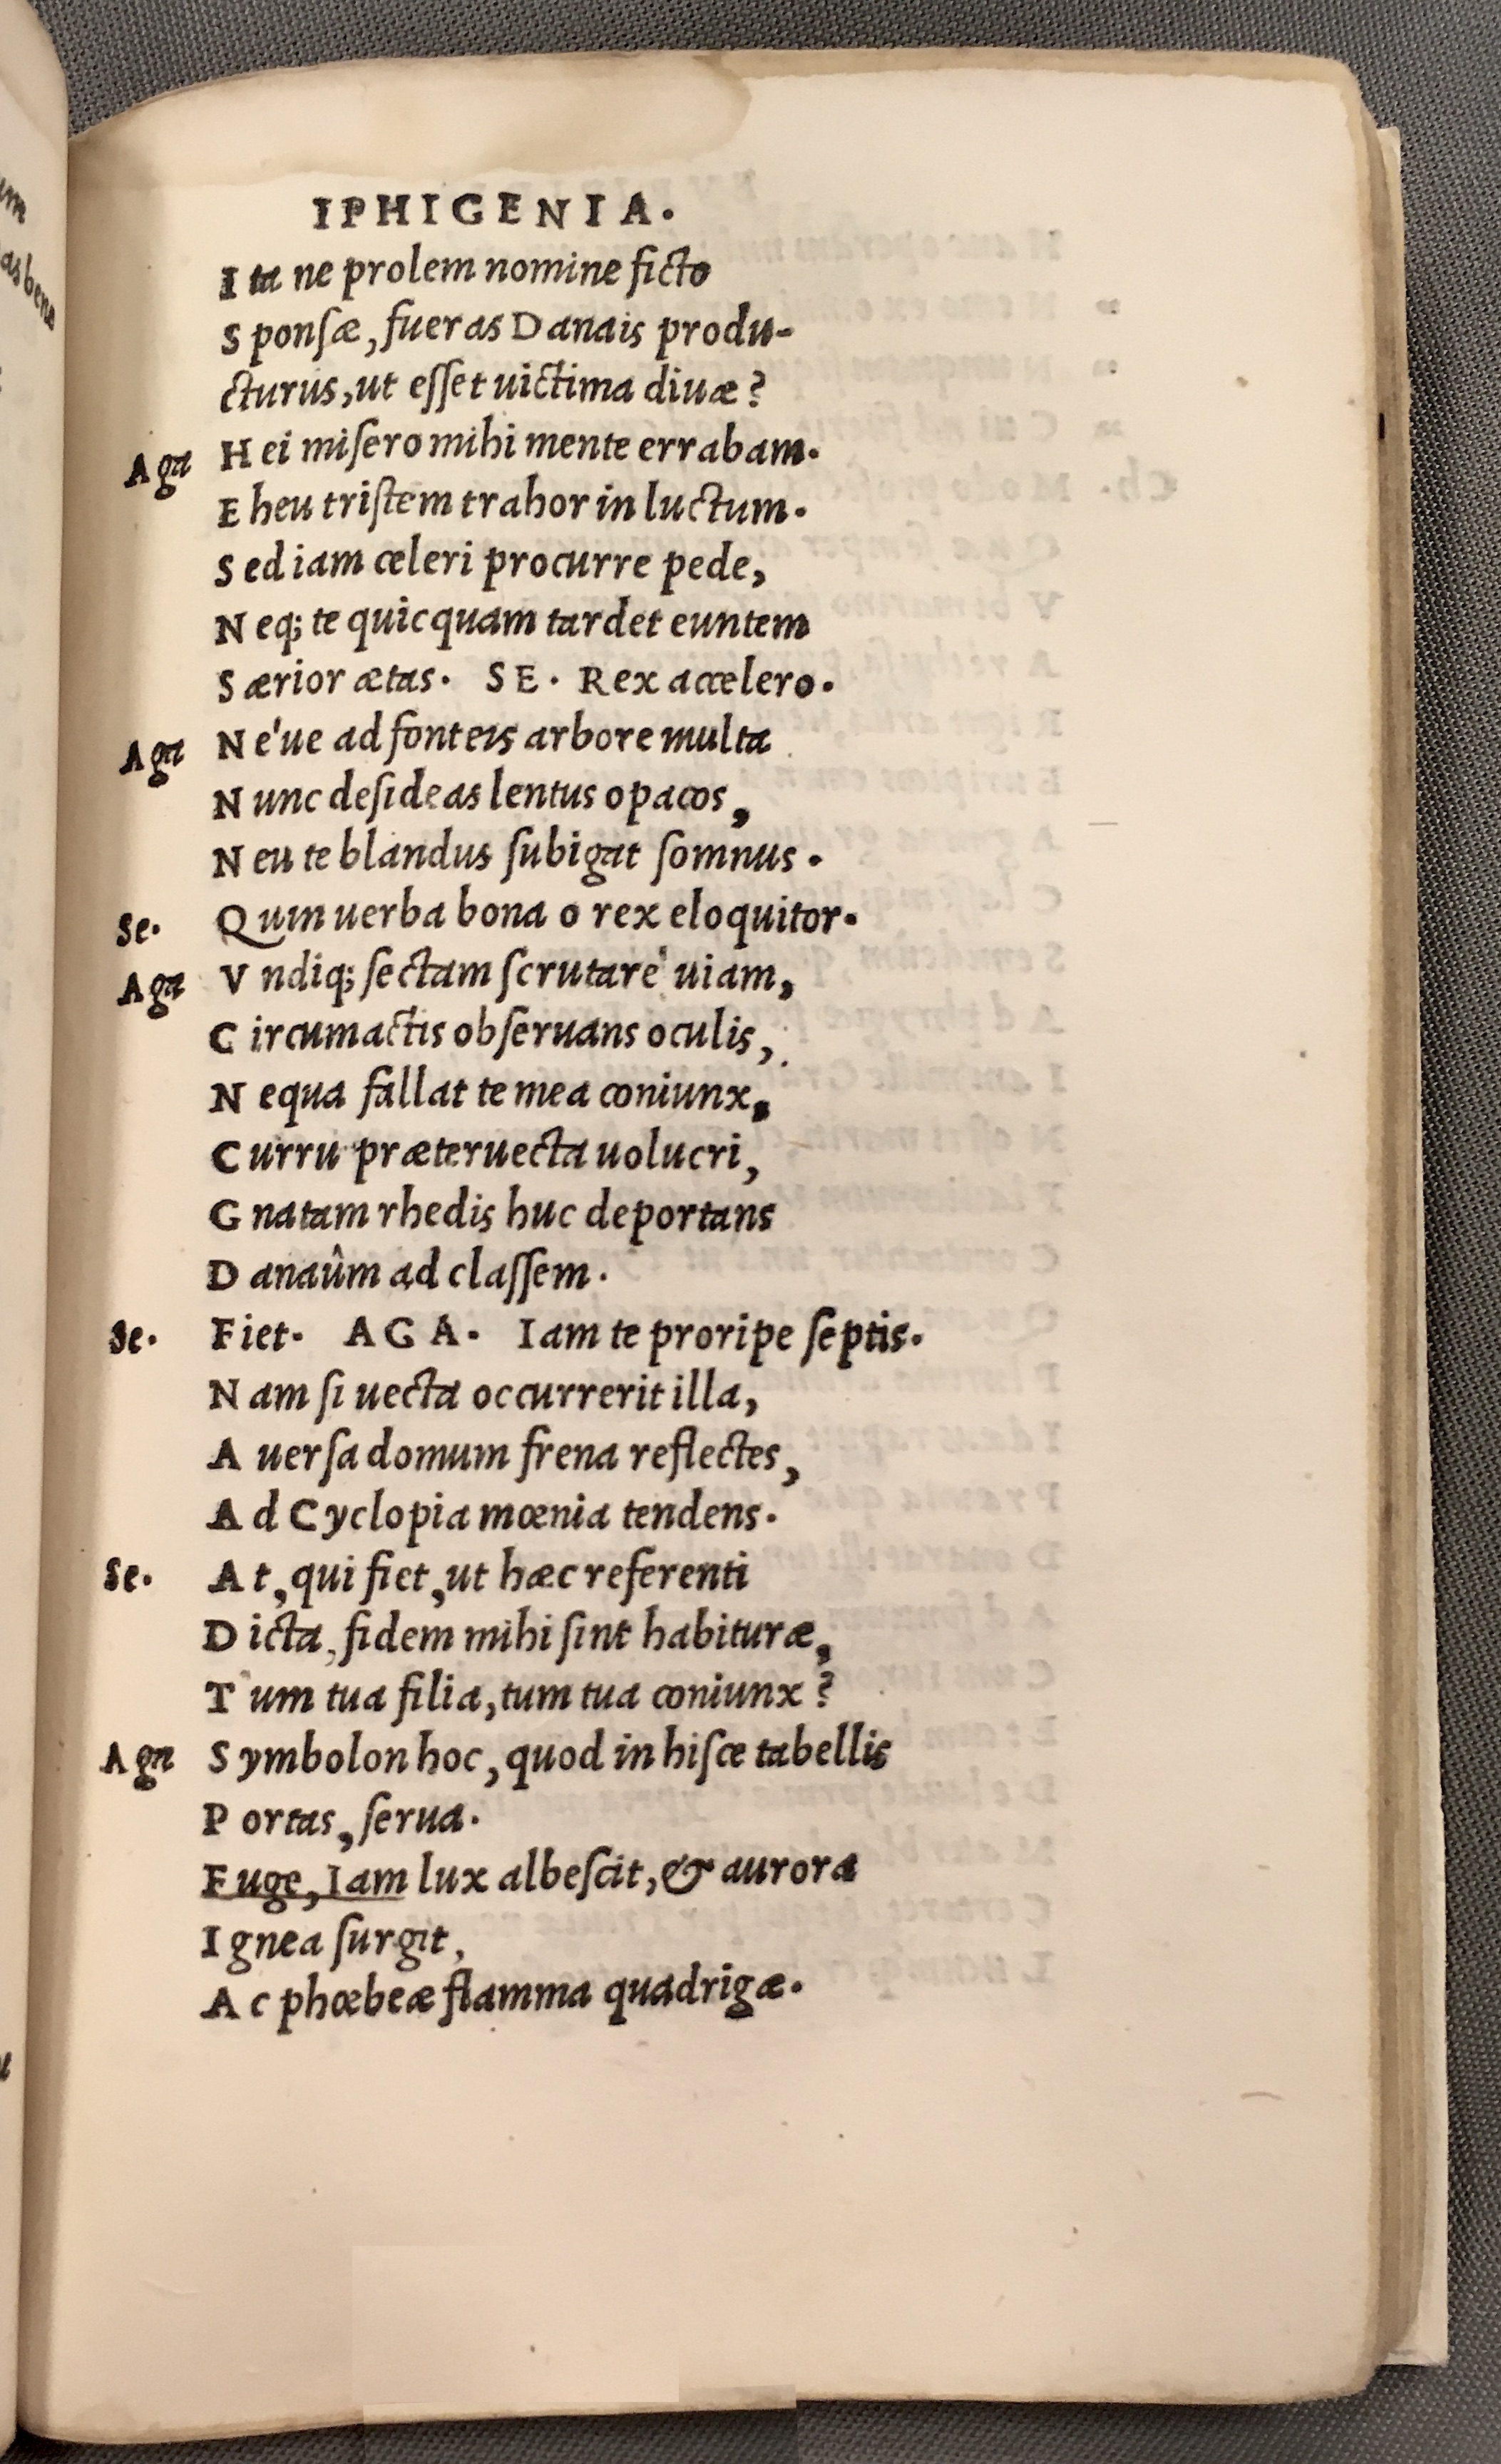 IPHIGENIA.
Ita ne prolem nomine ficto
Sponsæ, fueras Danais produ-
cturus, ut esset uictima diuæ?
Aga Hei misero mihi mente errabam.
Eheu tristem trahor in luctum.
Sed iam celeri procurre pede,
Neq; te quicquam tardet euntem
Særior ætas. SE. Rex accelero.
Aga Ne've ad fonteis arbore multa
Nunc desideas lentus opacos,
Neu te blandus subigat somnus.
Se. Quin uerba bona o rex eloquitor.
Aga Vndiq; sectam scrutare uiam,
Circumactis obseruans oculis,
Nequa fallat te mea coniunx,
Curru præteruecta uolucri,
Gnatam rhedis huc deportans
Danaûm ad classem.
Se. Fiet. AGA. Iam te proripe septis.
Nam si uecta occurrerit illa,
Auersa domum frena reflectes,
Ad Cyclopia mœnia tendens.
Se. At, qui fiet, ut hæc referenti
Dicta, fidem mihi sint habituræ,
Tum tua filia, tum tua coniunx?
Aga Symbolon hoc, quod in hisce tabellis
Portas, serua.
Fuge, Iam lux albescit, & aurora
Ignea surgit,
Ac phœbeæ flamma quadrigæ.